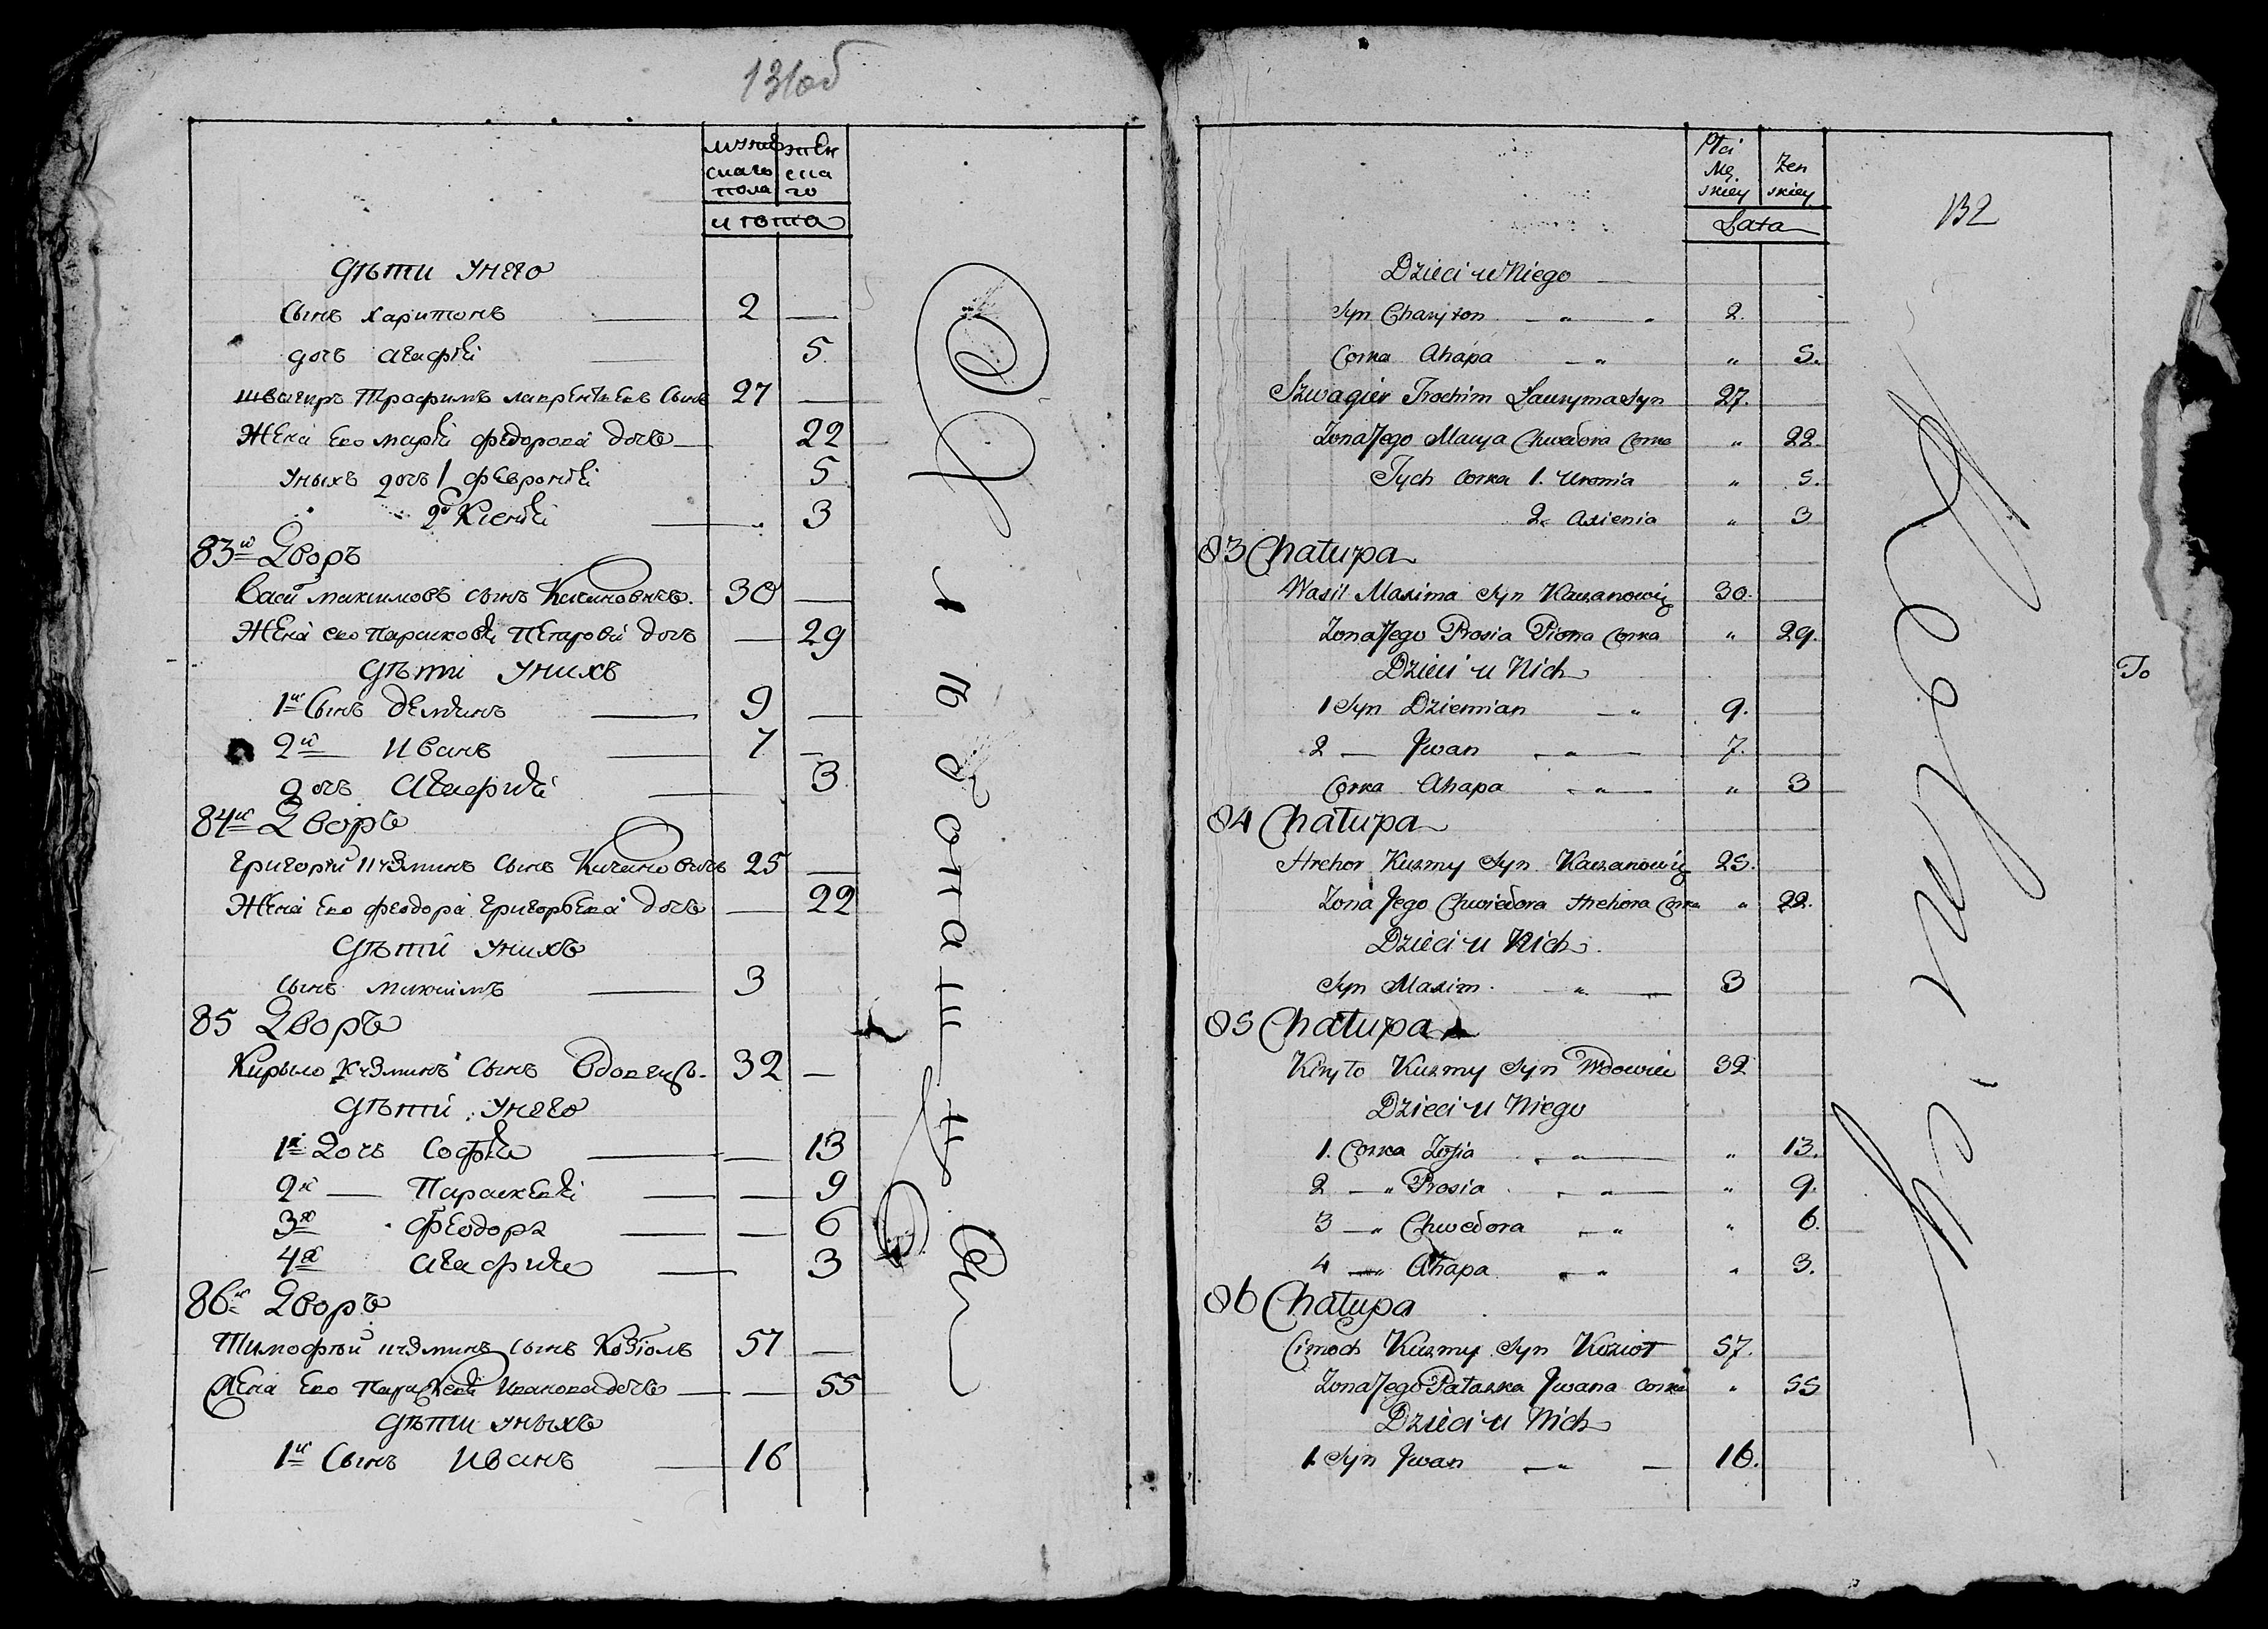 131об
мужескаго пола
женскаго
и лѣта
Дѣти унего
Сынъ харитонъ 2
дочъ агафiя 5
швагиръ Трафимъ лаврентьевъ Сынъ 27
Жена Его марiя федорова дочь 22
уныхъ дочъ 1 февронiя 5
2я Ксенiя 3
83й Дворъ
Васи максимовъ сынъ 30
Жена его парасковiя Петрова дочъ 29
Дѣти унихъ
1й Сынъ демiянъ 9
2й Иванъ 7
дочъ Агафия 3
84й Дворъ
Григорiй кузминъ Сынъ Качановичъ 25
Жена Его феодора Григорьева дочь 22
Дѣти унихъ
сынъ максимъ 3
85 Дворъ
Кирыло Кузминъ Сынъ Вдовецъ 32
Дѣти унего
1я Дочъ Софiя 13
2я — Параскевiя 9
3я феодора 6
4я агафия 3
86й Дворъ
Тимофѣй кузминъ сынъ Козiолъ 57
Жена Его Параскевiя Иванова дочь 55
Дѣти уныхъ
1й Сынъ Иванъ 16
132
Płci Mę skiey
Żen skiey
Lata
Dzieci u Niego
Syn Charyton „ 2.
Corka Ahapa „ „ 5.
Szwagier Trochim Ławryma Syn 27.
Zona Jego Marya Chwedora Corka „ 22.
Tych Corka 1. Uronia „ 5.
2. Axienia „ 3
83 Chałupa
Wasil Maxima Syn Kaczanowicz 30.
Zona Jego Prosia Piotra Corka „ 29.
Dzieci u Nich
1 Syn Dziemian „ 9.
2 — Jwan „ 7.
Corka Ahapa „ „ 3
84 Chałupa
Hrehor Kuzmy Syn Kaczanowicz 25.
Zona Jego Chwiedora Hrehora Corka „ 22.
Dzieci u Nich
Syn Maxim „ 3
85 Chałupa
Kiryło Kuzmy Syn Wdowiec 32
Dzieci u Niego
1. Corka Zofia „ „ 13.
2 — „ Prosia „ „ 9.
3 — „ Chwedora „ „ 6.
4 — „ Ahapa „ „ 3.
86 Chałupa
Cimoch Kuzmy Syn Kozioł 57.
Zona Jego Pałaszka Jwana Corka „ 55
Dzieci u Nich
1 Syn Jwan „ 16.
To